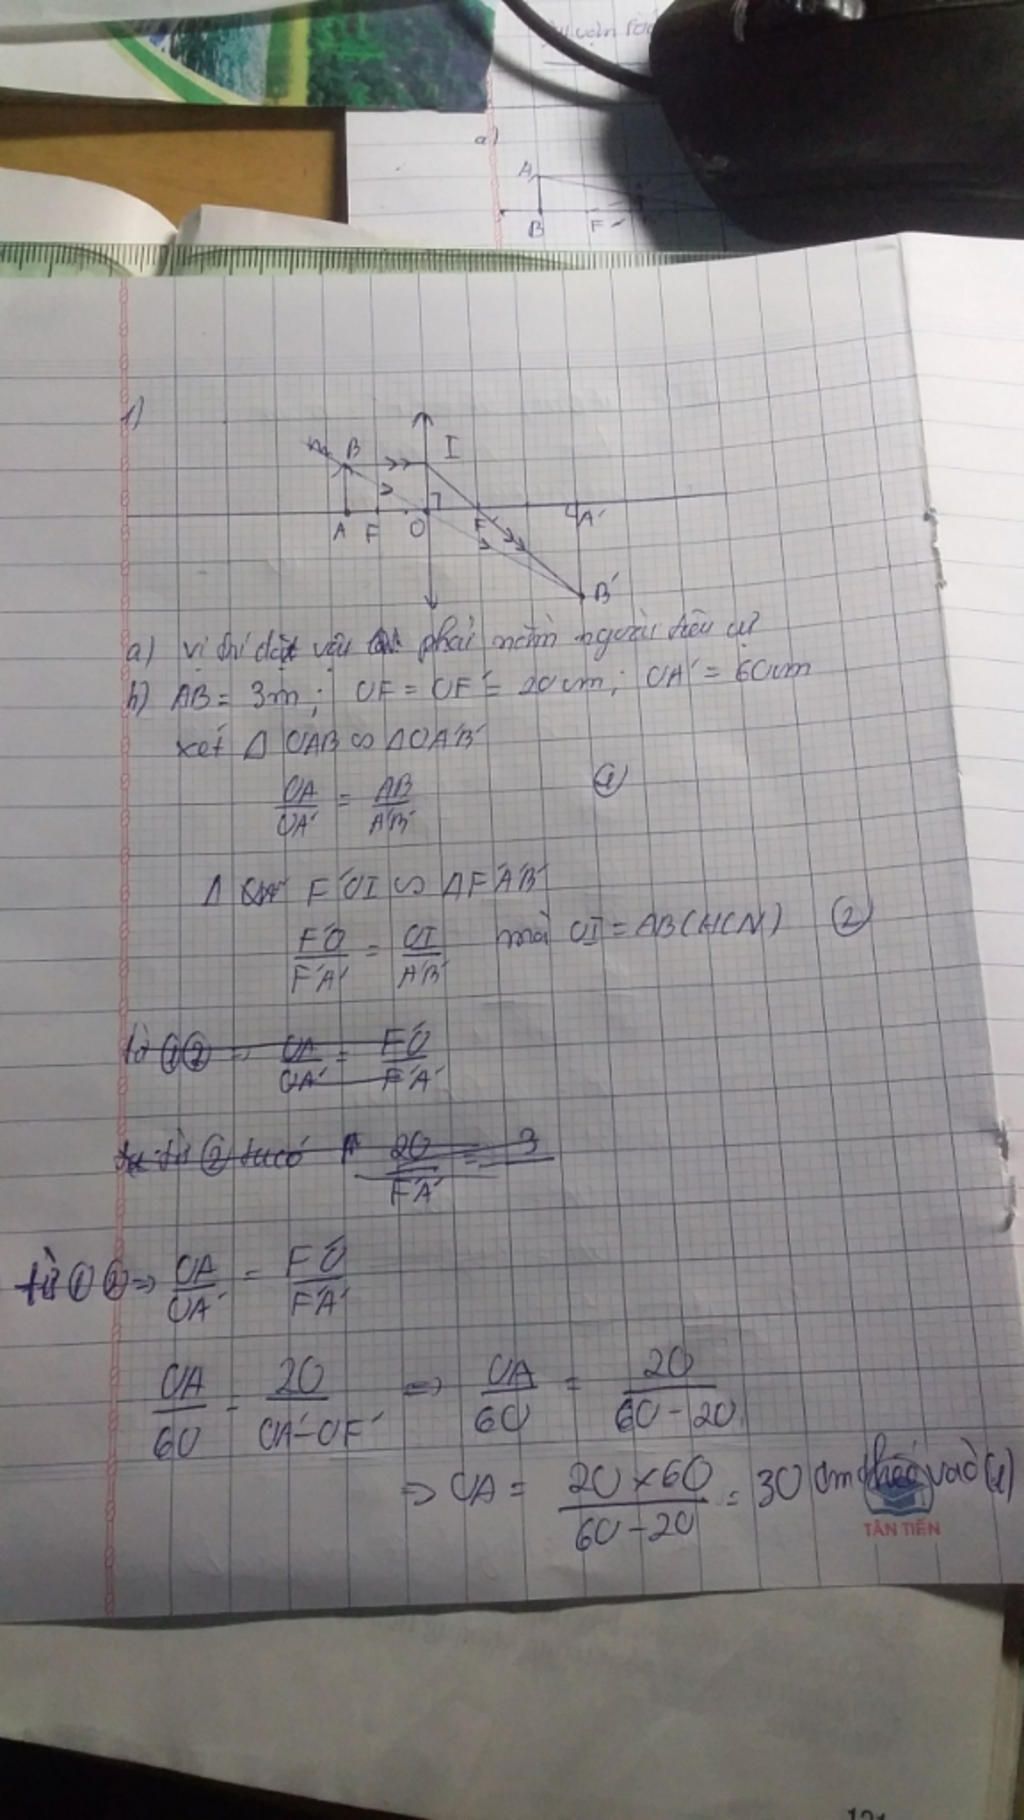 a)
A
B F
1)
B I
A F O F' A'
B'
a) vị trí đặt vật phải nằm ngoài tiêu cự
b) AB = 3m; OF = OF' = 20cm; OA' = 60cm
xét Δ OAB ∽ ΔOA'B'
OA/OA' = AB/A'B' (1)
Δ F'OI ∽ ΔF'A'B'
F'O/F'A' = OI/A'B' mà OI = AB (HCN) (2)
từ (1)(2) ⇒ OA/OA' = F'O/F'A'
từ (2) ta có 20/F'A' = 3
từ (1)(2) ⇒ OA/OA' = F'O/F'A'
OA/60 = 20/OA'-OF' ⇒ OA/60 = 20/60-20
⇒ OA = 20x60/60-20 = 30 cm thế vào (1)
TÂN TIẾN
121